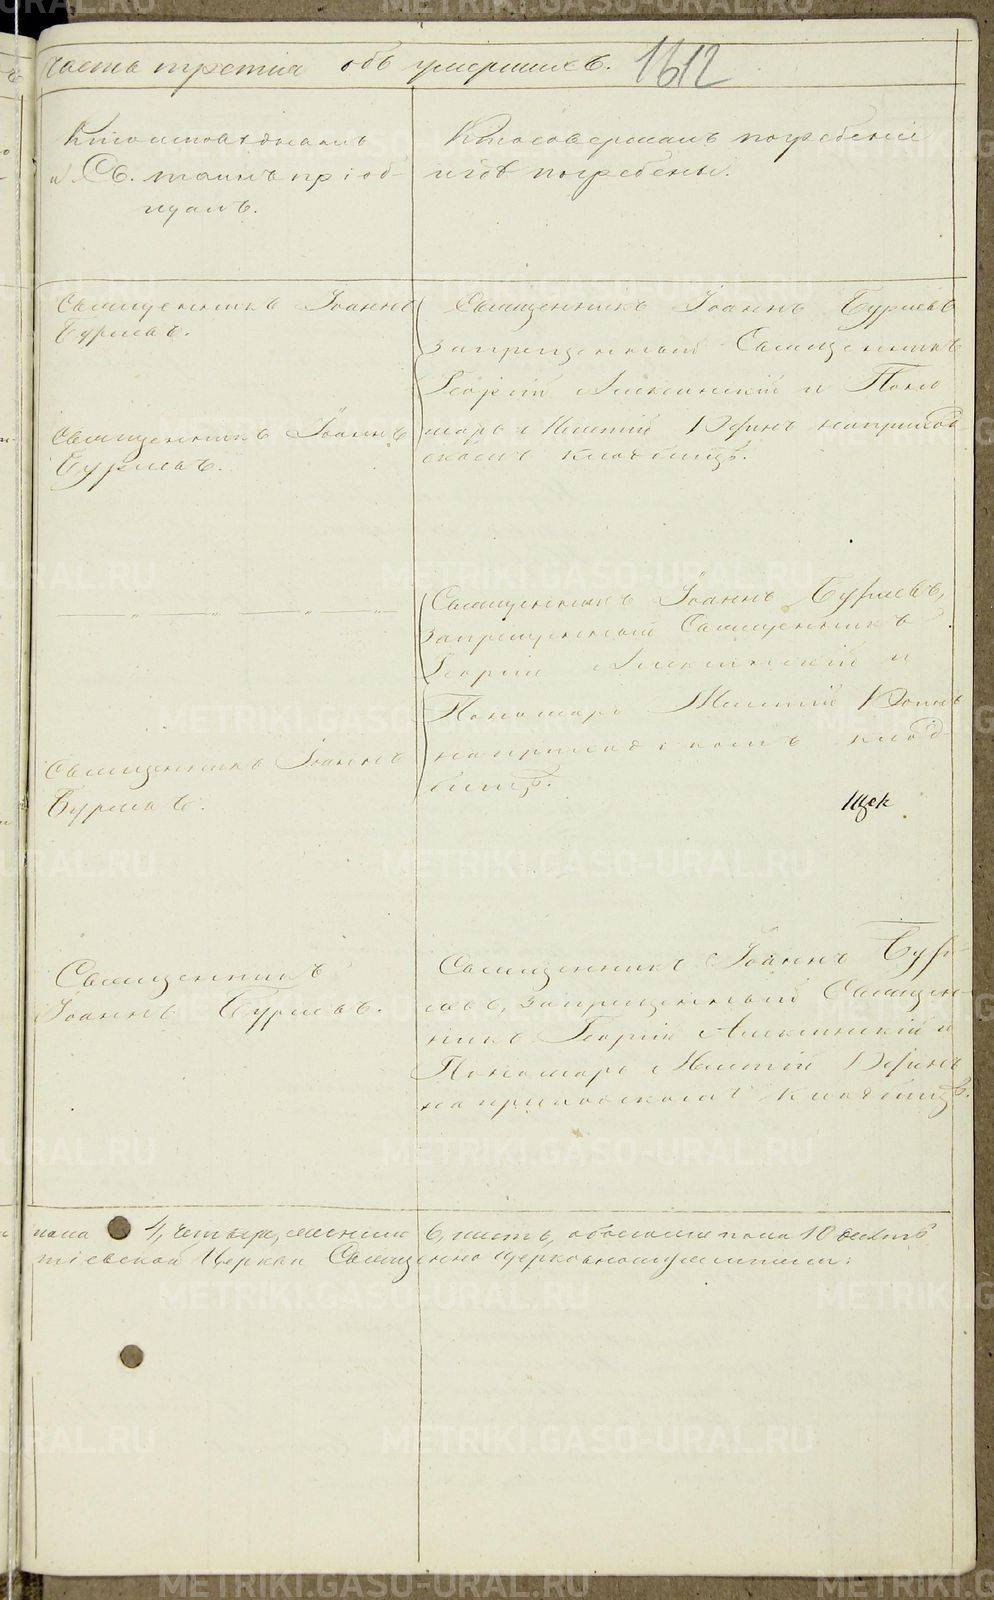 Часть третия объ умершихъ. 1612
Кто исповѣдывалъ
и Св. таинъ пріоб-
щалъ.
Кто совершалъ погребеніе
и гдѣ погребены.
Священникъ Іоаннъ
Бурмевъ.
Священникъ Іоаннъ Бурмевъ
запрещенный Священникъ
Георгій Алексинскій и Поно
марь Ипатій на приход
скомъ кладбищѣ.
Священникъ Іоаннъ
Бурмевъ.
— „ — „ — „ —
Священникъ Іоаннъ Бурмевъ,
запрещенный Священникъ
Георгій Алексинскій и
Пономарь Ипатій
на приходскомъ клад-
бищѣ.
Священникъ Іоаннъ
Бурмевъ.
Щек
Священникъ
Іоаннъ Бурмевъ.
Священникъ Іоаннъ Бур
мевъ, запрещенный Священ-
никъ Георгій Алексинскій и
Пономарь Ипатій
на приходскомъ кладбищѣ.
пола 4, четыре, женска 6, шесть, обоего пола 10 десять
тіевской Церкви Священно церковнослужители:
METRIKI.GASO-URAL.RU